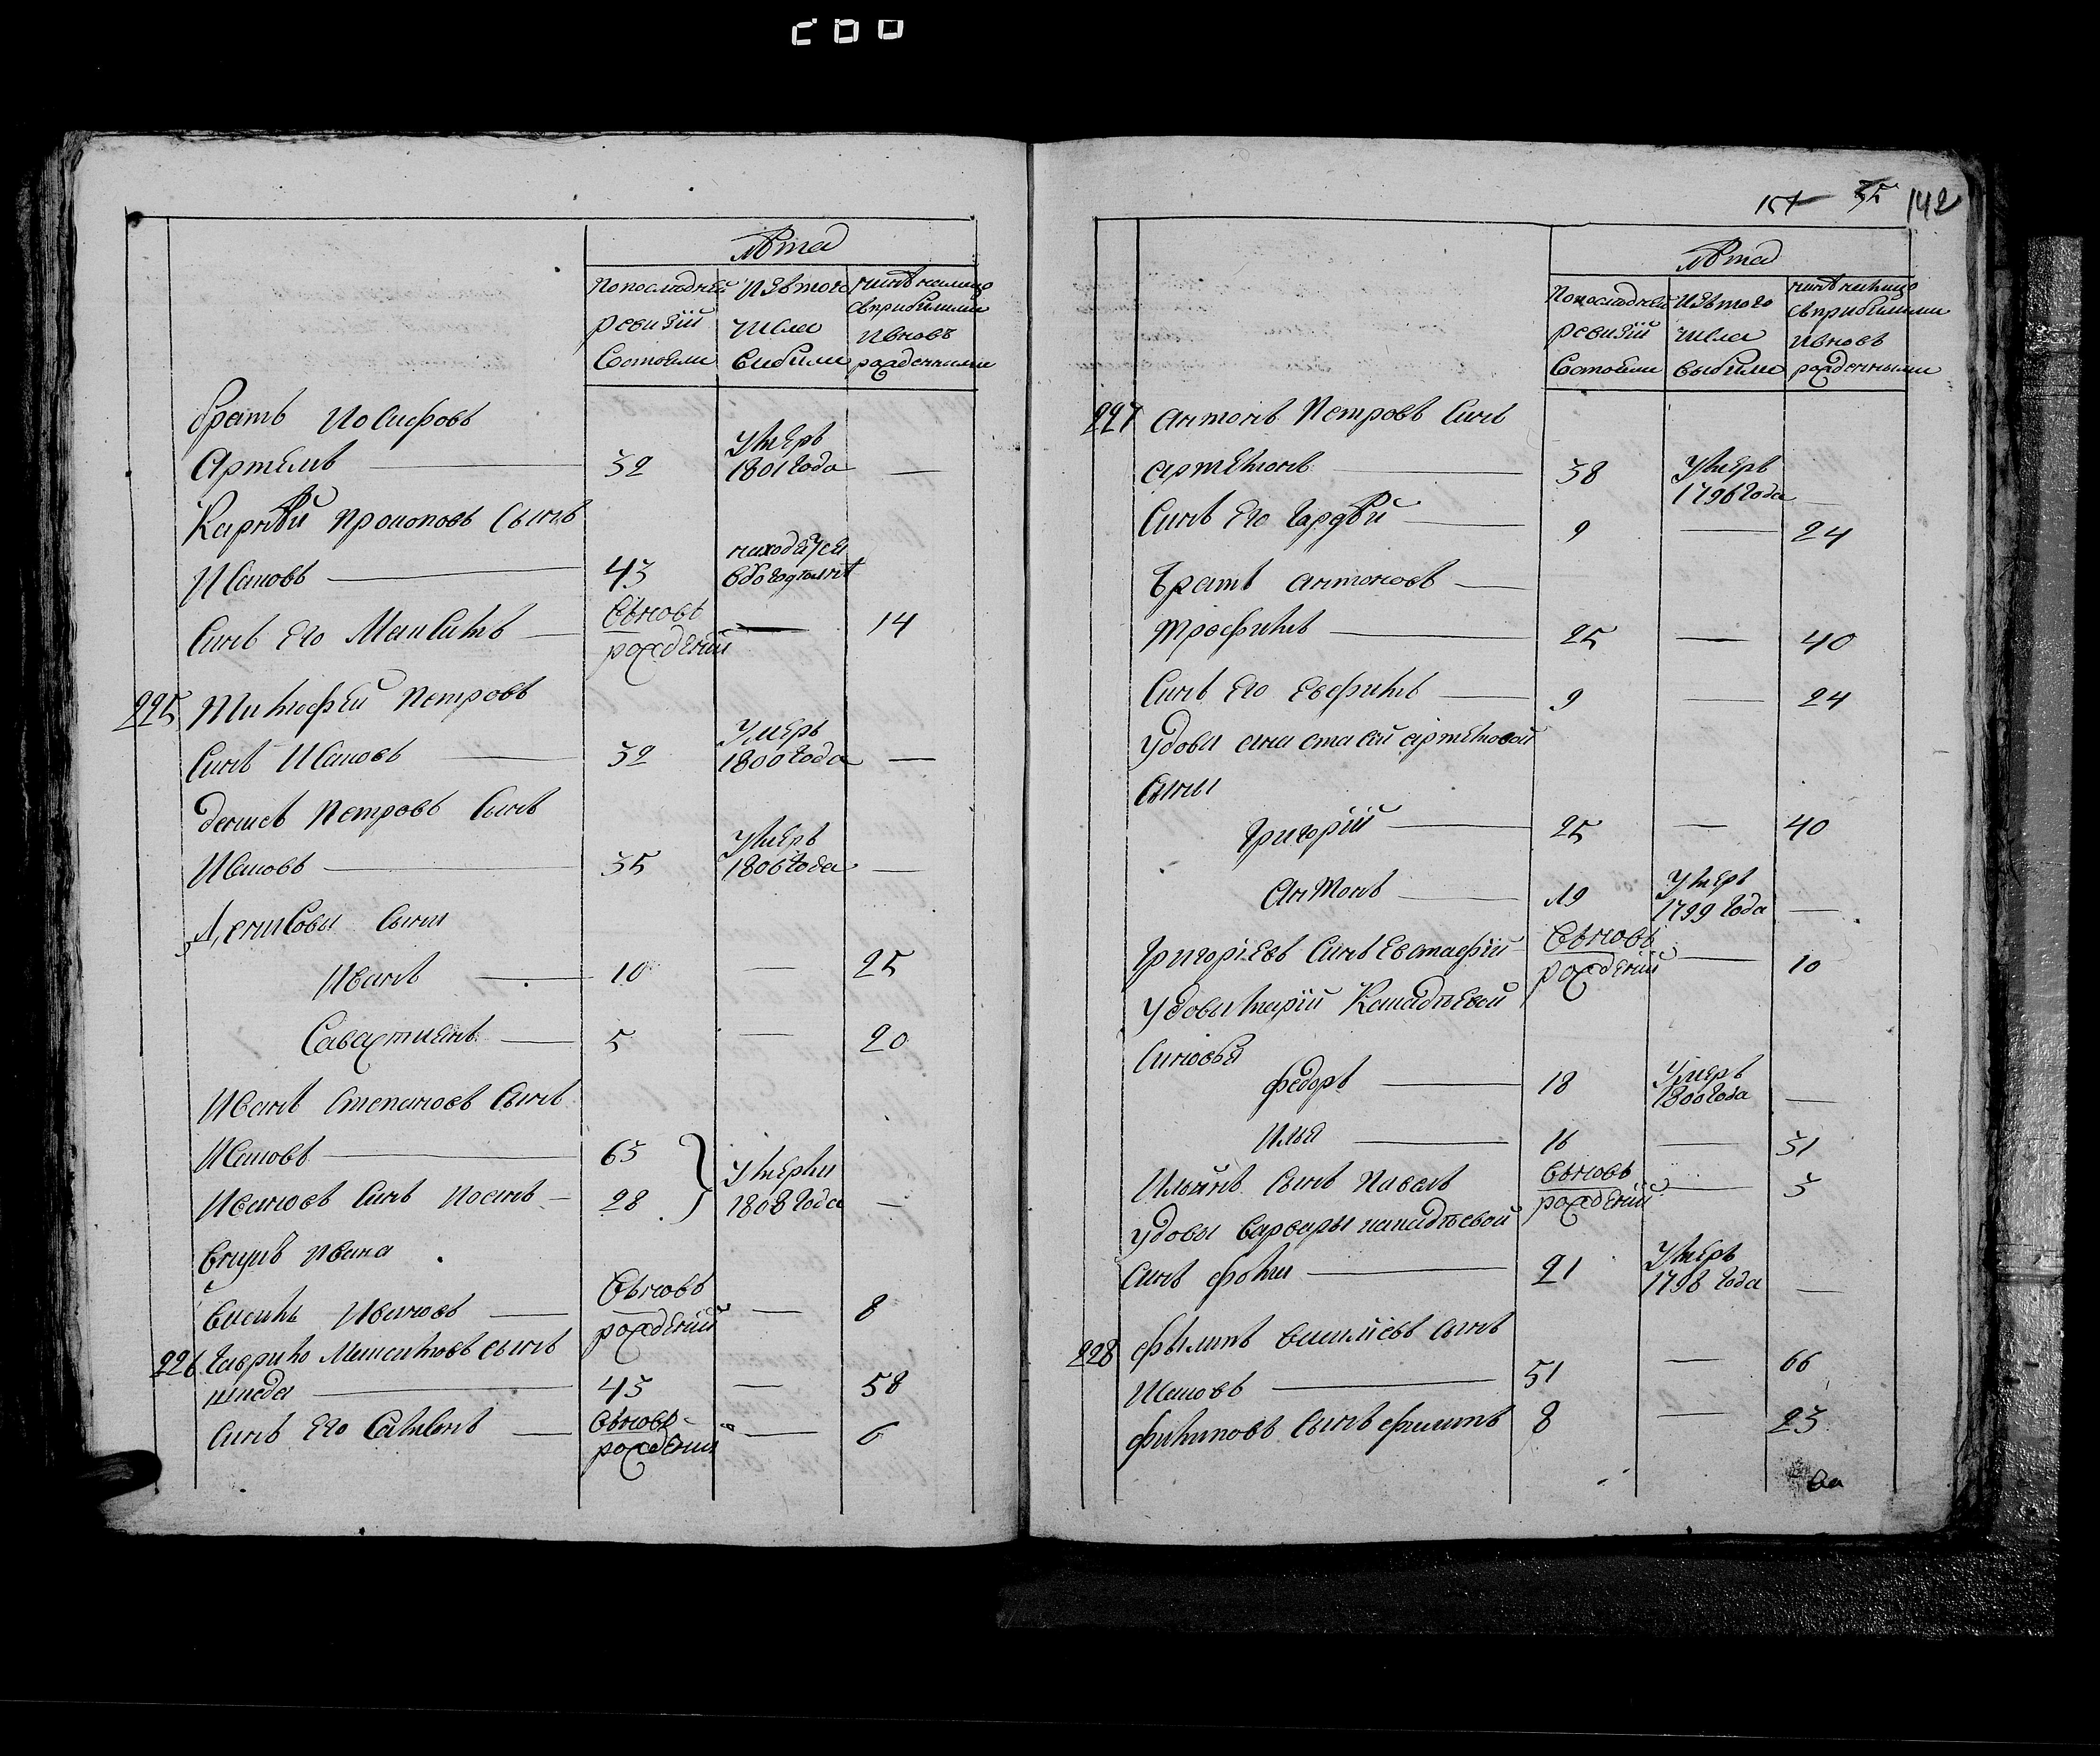 200
Лѣта
Попоследней ревизіи состояли
Изътого числа выбыли
ныне налицо съприбылыми ивновь рожденными
братъ Иосифовъ
Артемъ — 32 умеръ 1801 года —
Карнѣй Прокоповъ сынъ
Ивановъ — 43 находится
Сынъ его Максимъ — вновь рожденій — 14
225 Тимофей Петровъ
Сынъ Ивановъ — 32 умеръ 1800 года —
денисъ Петровъ Сынъ
Ивановъ — 35 умеръ 1806 года —
Денисовы Сыни
Иванъ — 10 — 25
Савастиянъ — 5 — 20
Иванъ Степановъ Сынъ
Ивановъ — 63
Ивановъ Синъ Иосипъ — 28 } умерли 1808 года —
внукъ Ивана
Ивановъ — вновь рожденій — 8
226 Гаврило Максимовъ сынъ
43 — 58
Синъ его Самсонъ — вновь рожденій — 6
151 35 142
Лѣта
Попоследней ревизіи состояли
Изътого числа выбыли
ныне налицо съприбылыми ивновь рожденными
227 Антонъ Петровъ Синъ
Артемовъ — 38 умеръ 1796 года —
Синъ его Гордѣй — 9 — 24
братъ Антоновъ —
Трофимъ — 25 — 40
Синъ его Евфимъ — 9 — 24
удовы анастасіи артемовой
Сыны
Григорій — 25 — 40
Антонъ — 19 умеръ 1799 года —
Григоріевъ Синъ Евстафій — вновь рожденій — 10
удовы маріи
Синовья
Федоръ — 18 умеръ 1800 года —
Илья — 16 — 31
Ильинъ Сынъ Павелъ вновь рожденій — 3
удовы варвары
Синъ Фома — 21 умеръ 1798 года —
228 Филипъ василіевъ сынъ
Ивановъ — 51 — 66
Филиповъ Сынъ Филипъ 8 — 23